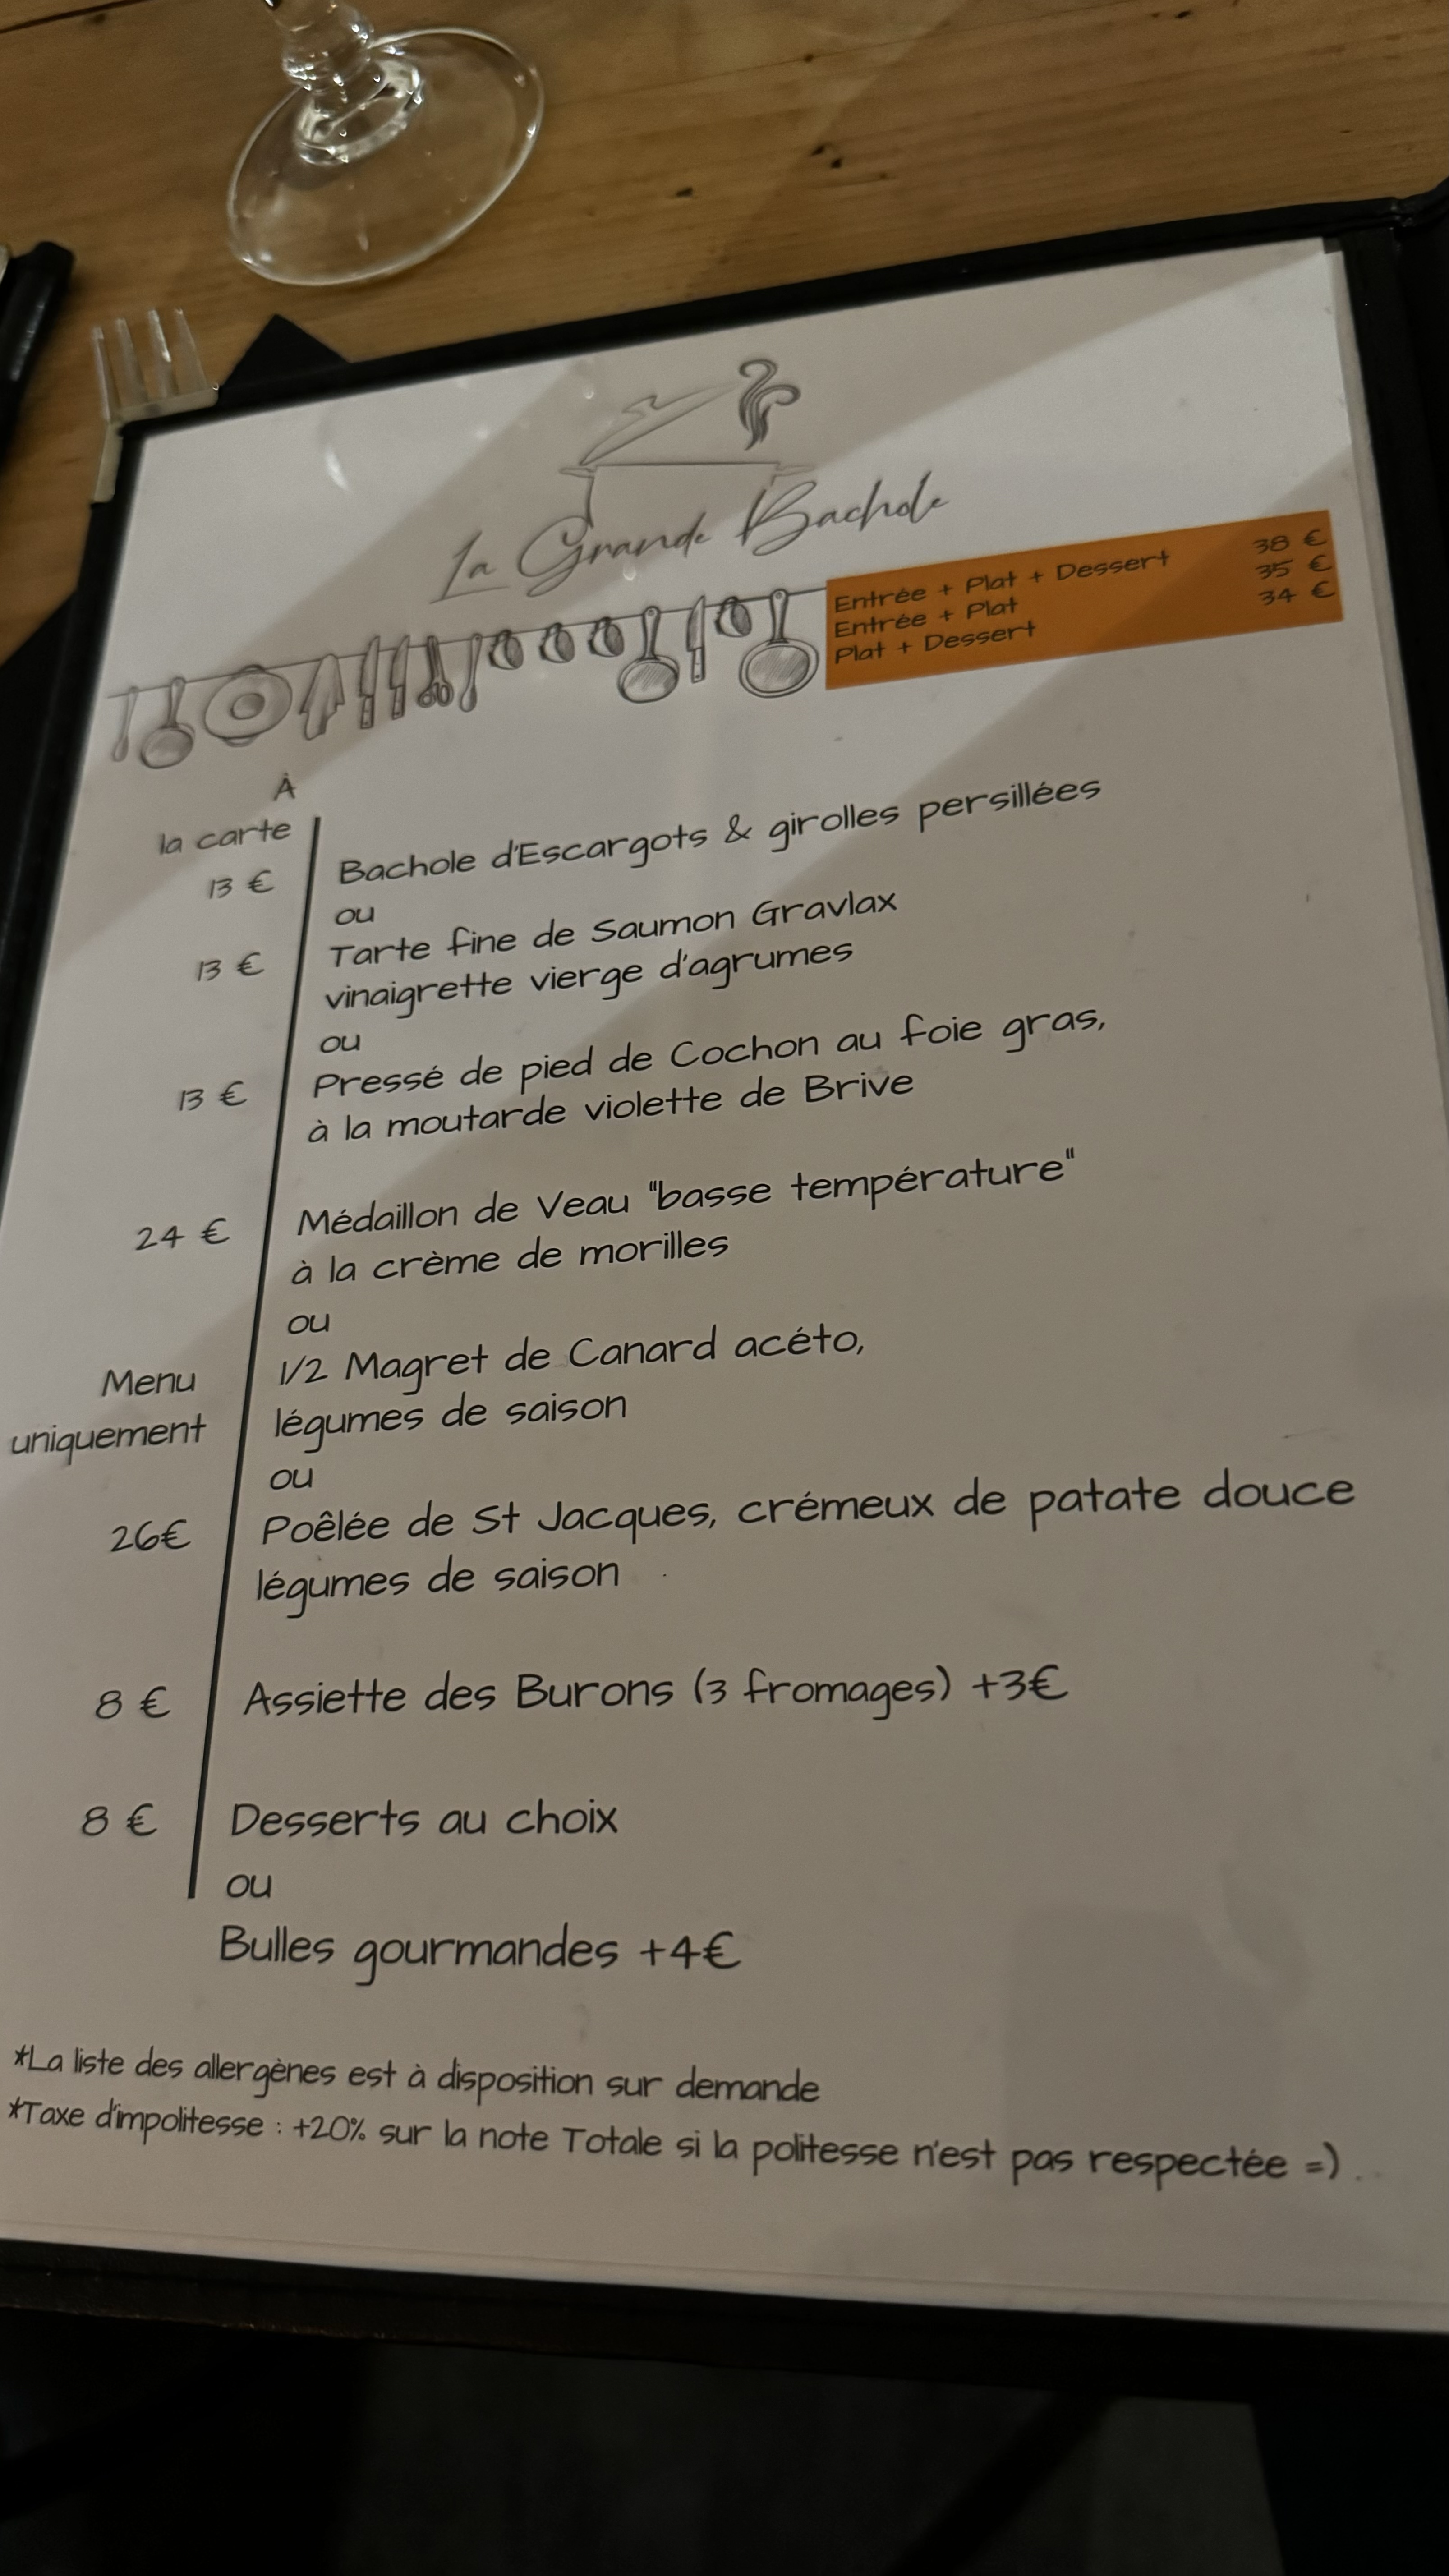 La Grande Bachole
Entrée + Plat + Dessert 38 €
Entrée + Plat 35 €
Plat + Dessert 34 €
À
la carte
13 € Bachole d'Escargots & girolles persillées
ou
13 € Tarte fine de Saumon Gravlax
vinaigrette vierge d'agrumes
ou
13 € Pressé de pied de Cochon au foie gras,
à la moutarde violette de Brive
24 € Médaillon de Veau "basse température"
à la crème de morilles
ou
Menu 1/2 Magret de Canard acéto,
uniquement légumes de saison
ou
26€ Poêlée de St Jacques, crémeux de patate douce
légumes de saison
8 € Assiette des Burons (3 fromages) +3€
8 € Desserts au choix
ou
Bulles gourmandes +4€
*La liste des allergènes est à disposition sur demande
*Taxe d'impolitesse : +20% sur la note Totale si la politesse n'est pas respectée =)